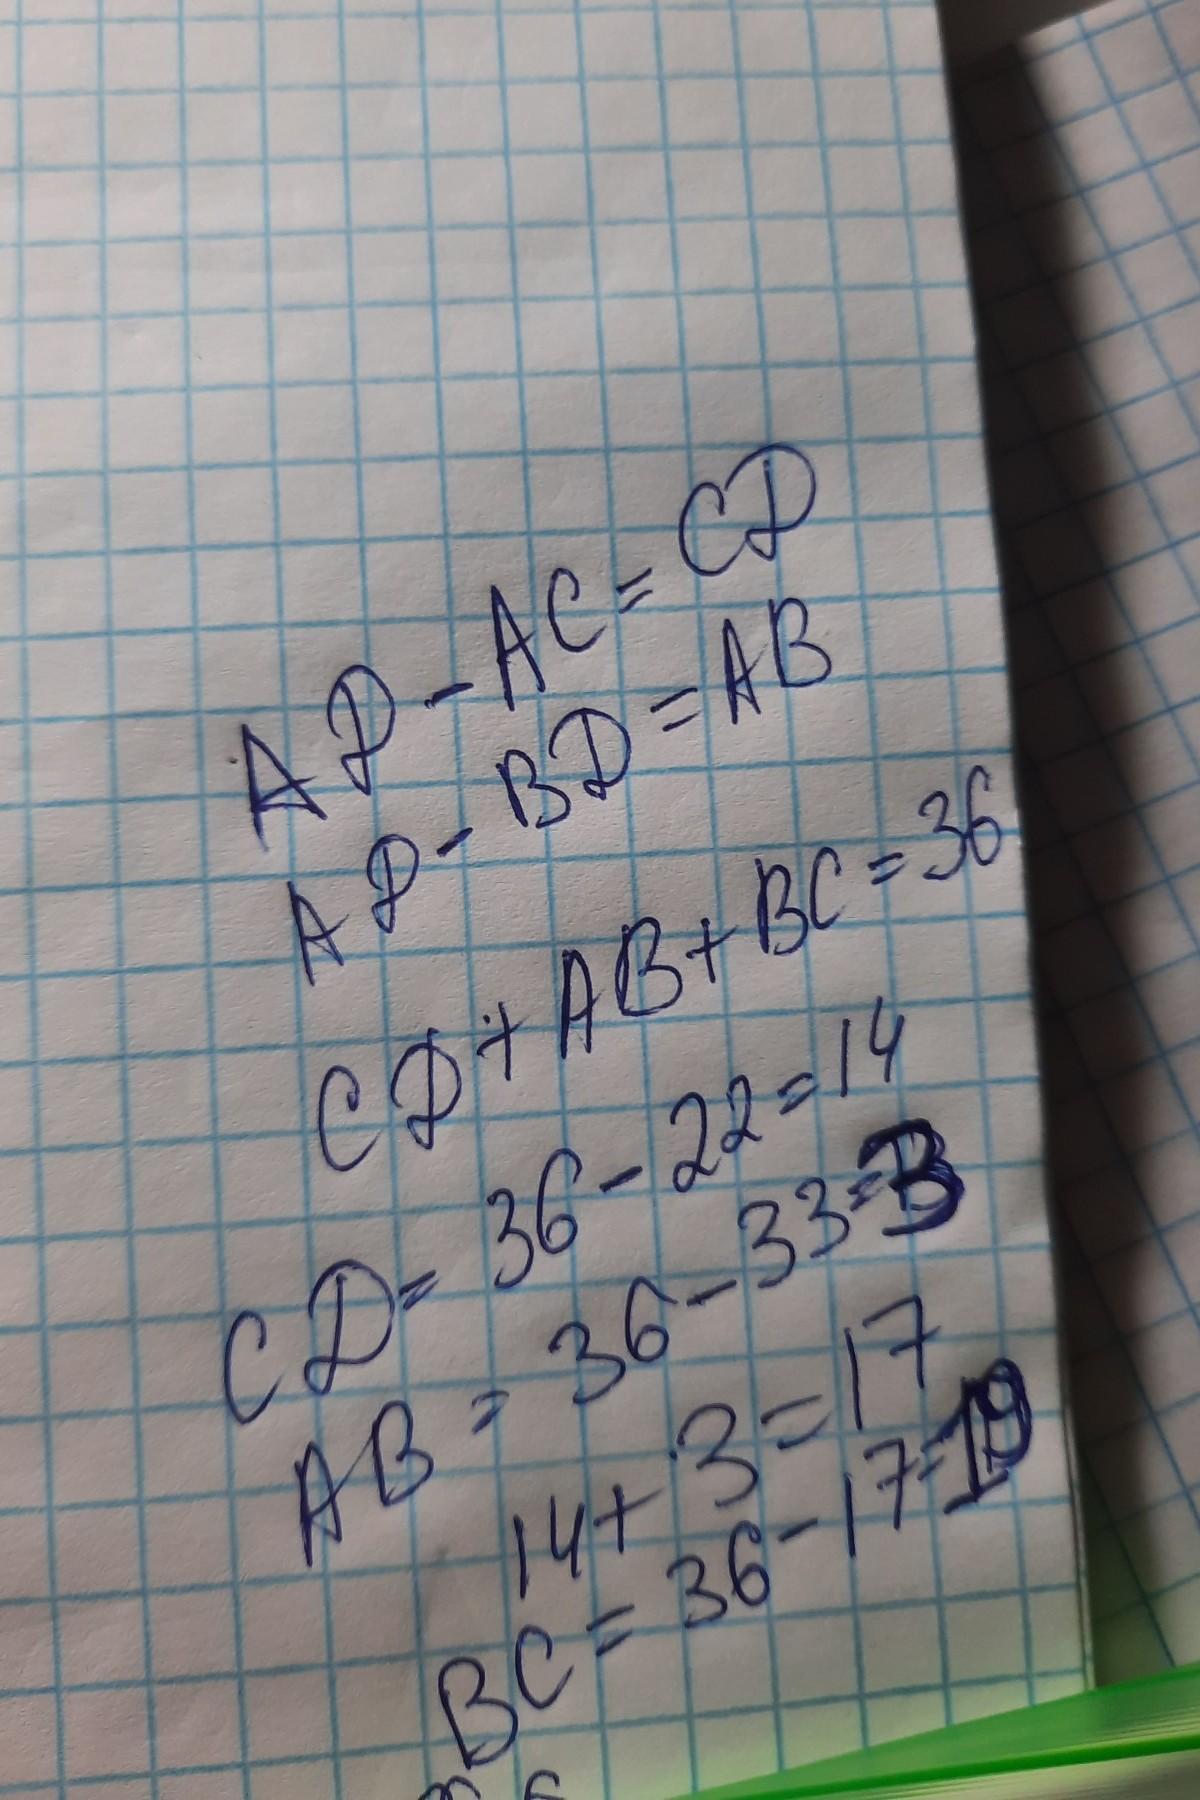 AD - AC = CD
AD - BD = AB
CD + AB + BC = 36
CD = 36 - 22 = 14
AB = 36 - 33 = 3
14 + 3 = 17
BC = 36 - 17 = 19